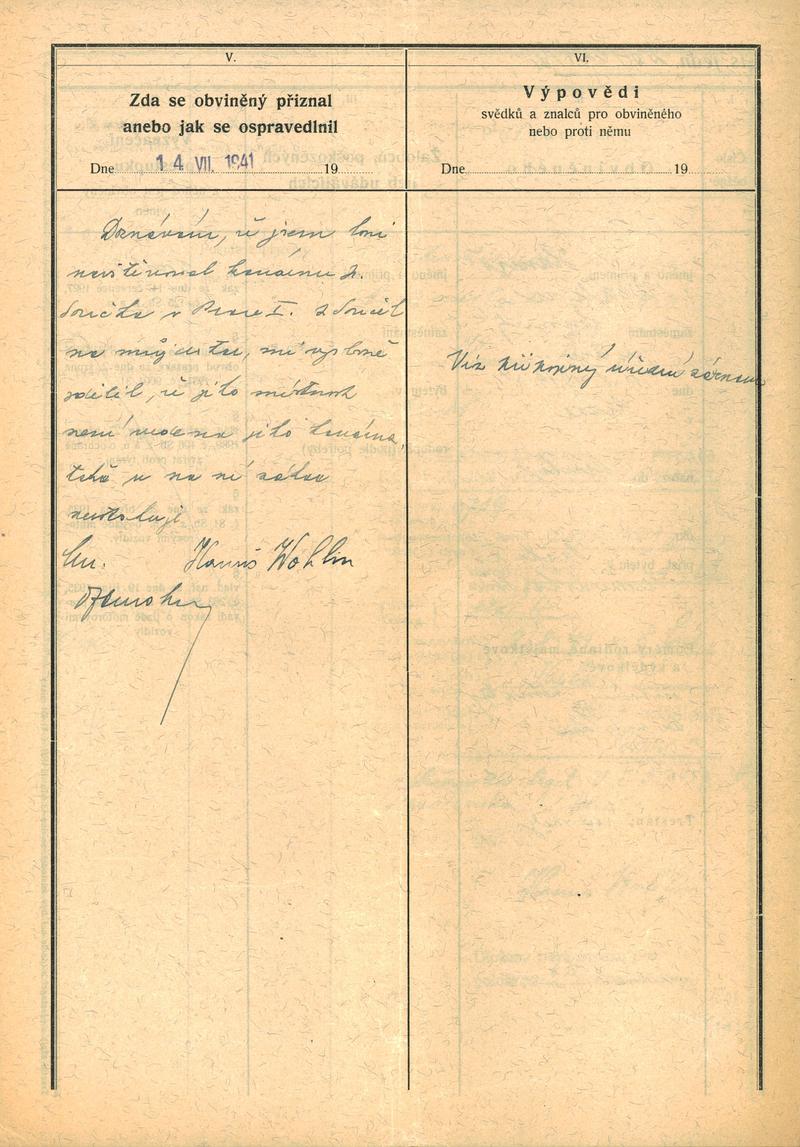 V.
Zda se obviněný přiznal
anebo jak se ospravedlnil
Dne 14. VII. 1941 19
Doznávám, že jsem loni
navštěvoval kavárnu
Součka v Praze I. a Souček
na můj dotaz, mi výslovně
sdělil, že jeho místnost
není vedena jako kavárna,
takže se na ni zákaz
nevztahuje
Hanuš Wohlin
VI.
Výpovědi
svědků a znalců pro obviněného
nebo proti němu
Dne 19
Viz úřední záznam